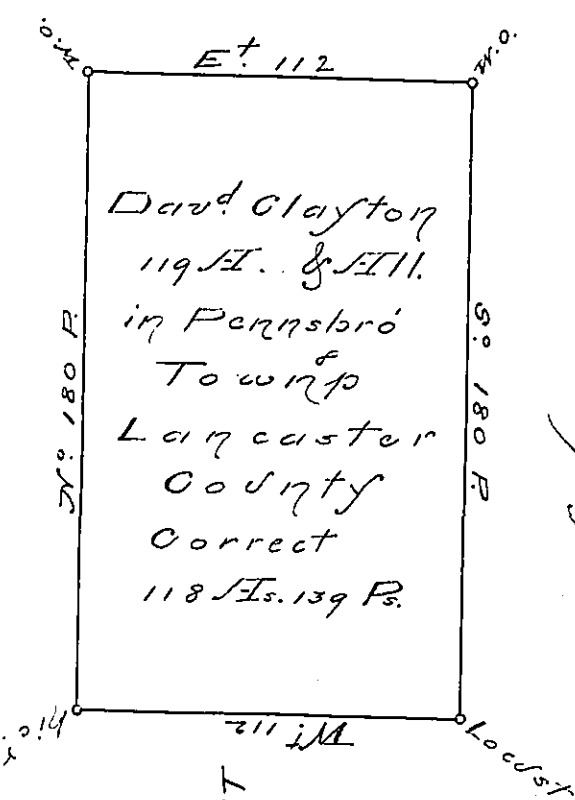 W.O.
Et. 112
W.O.
Davd. Clayton
119 A. & All.
in Pennsbro'
Townsp
Lancaster
County
Correct
118 As. 139 Ps.
No. 180 P.
So. 180 P.
hicy.
Wt. 112
Locust